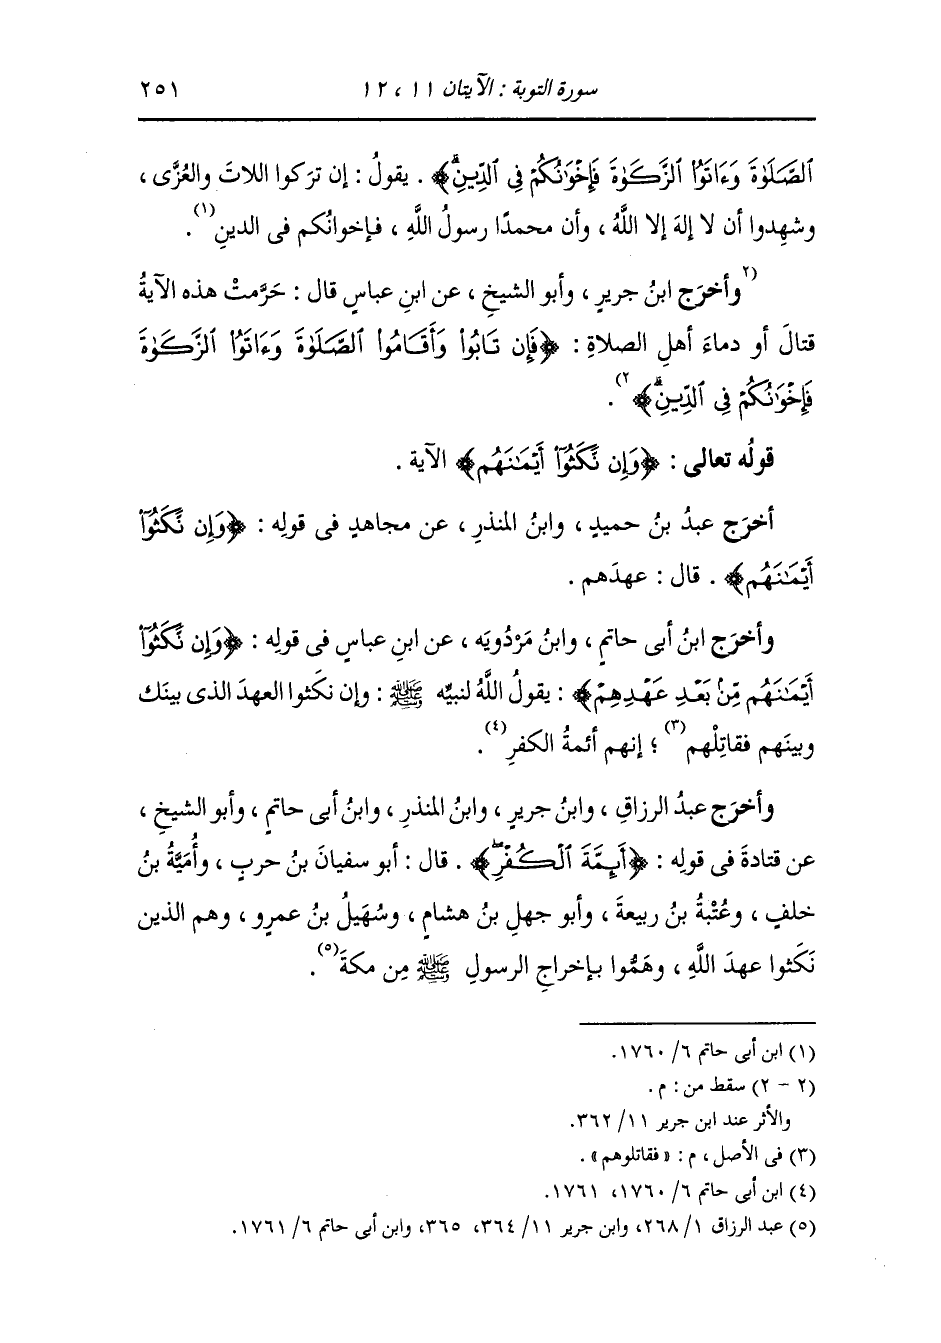 سورة التوبة : الآيتان ١١ ، ١٢ ٢٥١
ٱلصَّلَوٰةَ وَءَاتَوُا۟ ٱلزَّكَوٰةَ فَإِخْوَٰنُكُمْ فِى ٱلدِّينِۗ﴾ . يقولُ : إن ترَكوا اللاتَ والعُزَّى ،
وشهِدوا أن لا إلهَ إلا اللَّهُ ، وأن محمدًا رسولُ اللَّهِ ، فإخوانُكم فى الدينِ(١).
(٢وأخرَج ابنُ جريرٍ ، وأبو الشيخِ ، عن ابنِ عباسٍ قال : حَرَّمتْ هذه الآيةُ
قتالَ أو دماءَ أهلِ الصلاةِ : ﴿فَإِن تَابُوا۟ وَأَقَامُوا۟ ٱلصَّلَوٰةَ وَءَاتَوُا۟ ٱلزَّكَوٰةَ
فَإِخْوَٰنُكُمْ فِى ٱلدِّينِۗ﴾٢).
قولُه تعالى : ﴿وَإِن نَّكَثُوٓا۟ أَيْمَٰنَهُم﴾ الآية .
أخرَج عبدُ بنُ حميدٍ ، وابنُ المنذرِ ، عن مجاهدٍ فى قولِه : ﴿وَإِن نَّكَثُوٓا۟
أَيْمَٰنَهُم﴾ . قال : عهدَهم .
وأخرَج ابنُ أبى حاتمٍ ، وابنُ مَرْدُويَه ، عن ابنِ عباسٍ فى قولِه : ﴿وَإِن نَّكَثُوٓا۟
أَيْمَٰنَهُم مِّنۢ بَعْدِ عَهْدِهِمْ﴾ : يقولُ اللَّهُ لنبيِّه ﷺ : وإن نكَثوا العهدَ الذى بينَك
وبينَهم فقاتِلْهم(٣) ؛ إنهم أئمةُ الكفرِ(٤).
وأخرَج عبدُ الرزاقِ ، وابنُ جريرٍ ، وابنُ المنذرِ ، وابنُ أبى حاتمٍ ، وأبو الشيخِ ،
عن قتادةَ فى قولِه : ﴿أَئِمَّةَ ٱلْكُفْرِۖ﴾ . قال : أبو سفيانَ بنُ حربٍ ، وأُميَّةُ بنُ
خلفٍ ، وعُتْبةُ بنُ ربيعةَ ، وأبو جهلِ بنُ هشامٍ ، وسُهَيلُ بنُ عمرٍو ، وهم الذين
نَكَثوا عهدَ اللَّهِ ، وهَمُّوا بإخراجِ الرسولِ ﷺ مِن مكةَ(٥).
(١) ابن أبى حاتم ٦/ ١٧٦٠.
(٢ - ٢) سقط من : م .
والأثر عند ابن جرير ١١/ ٣٦٢.
(٣) فى الأصل ، م : « فقاتلوهم » .
(٤) ابن أبى حاتم ٦/ ١٧٦٠، ١٧٦١.
(٥) عبد الرزاق ١/ ٢٦٨، وابن جرير ١١/ ٣٦٤، ٣٦٥، وابن أبى حاتم ٦/ ١٧٦١.